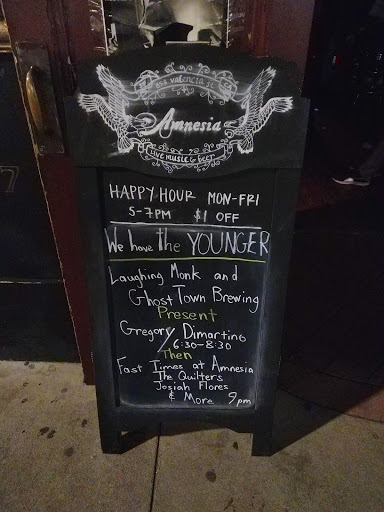 853 Valencia St.
Amnesia
LIVE MUSIC & BEER
HAPPY HOUR MON-FRI
5-7PM $1 OFF
We have the YOUNGER
Laughing Monk and
Ghost Town Brewing
Present
Gregory Dimartino
6:30-8:30
Then
Fast Times at Amnesia
The Quilters
Josiah Flores
& More 9pm